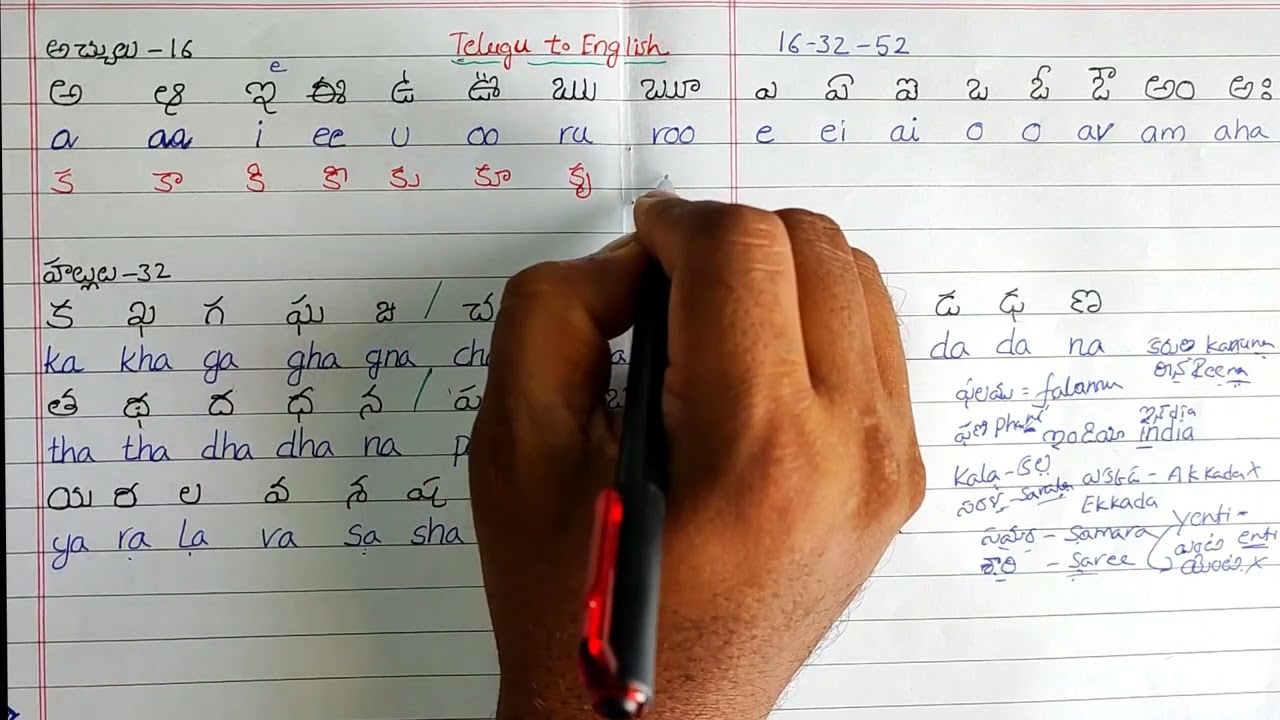 అచ్చులు - 16 Telugu to English 16-32-52
e
అ ఆ ఇ ఈ ఉ ఊ ఋ ౠ ఎ ఏ ఐ ఒ ఓ ఔ అం అః
a aa i ee u oo ru roo e ei ai o o av am aha
క కా కి కీ కు కూ కృ
హల్లులు - 32
క ఖ గ ఘ ఙ / చ డ ఢ ణ
ka kha ga gha gna da da na
కరుణ Karuna
రీన Reena
త థ ద ధ న / ప
ఫలము = falamu
tha tha dha dha na p
ఇన్‌డియా
ఇండియా India
య ర ల వ శ ష
Kala - కల ఎక్కడ - Akkada X
సరళ - Sarala Ekkada
ya ra la va sa sha
సమర - Samara Yenti -
enti
శారీ - Saree X